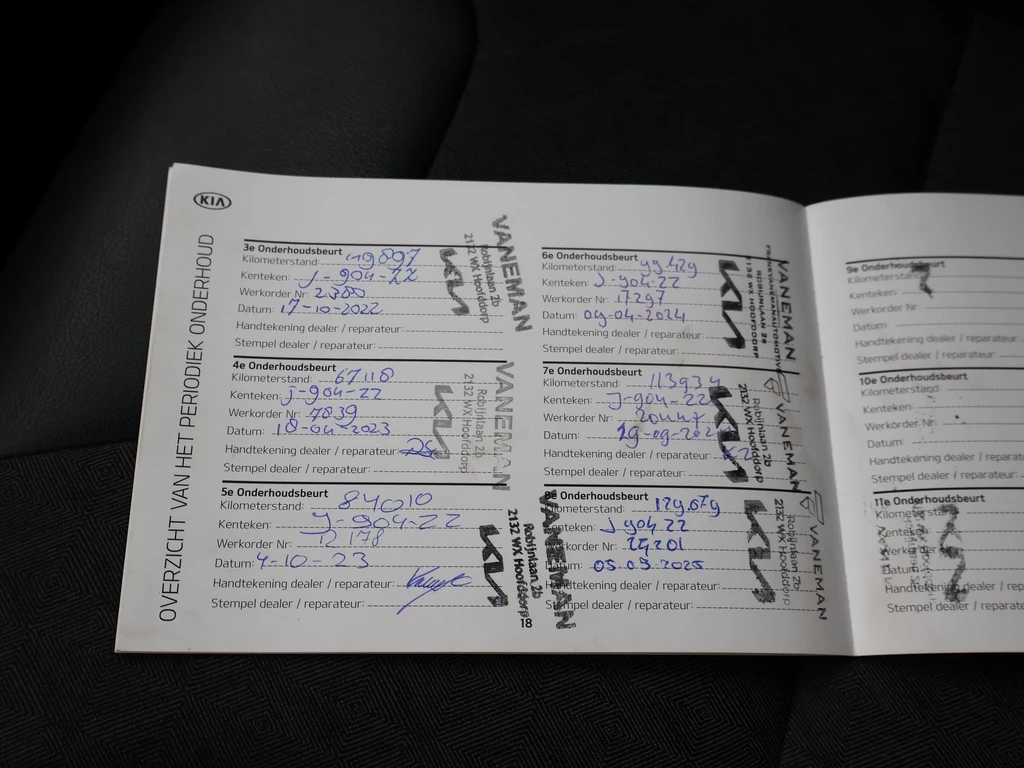 KIA
OVERZICHT VAN HET PERIODIEK ONDERHOUD
3e Onderhoudsbeurt
Kilometerstand: 49897
Kenteken: J-904-ZZ
Werkorder Nr: 2380
Datum: 17-10-2022
Handtekening dealer / reparateur:
Stempel dealer / reparateur:
VANEMAN
Robijnlaan 2b
2132 WX Hoofddorp
KIA
4e Onderhoudsbeurt
Kilometerstand: 67118
Kenteken: J-904-ZZ
Werkorder Nr: 7839
Datum: 18-04-2023
Handtekening dealer / reparateur:
Stempel dealer / reparateur:
VANEMAN
Robijnlaan 2b
2132 WX Hoofddorp
KIA
5e Onderhoudsbeurt
Kilometerstand: 84010
Kenteken: J-904-ZZ
Werkorder Nr: 12178
Datum: 4-10-23
Handtekening dealer / reparateur:
Stempel dealer / reparateur:
VANEMAN
Robijnlaan 2b
2132 WX Hoofddorp
KIA
18
6e Onderhoudsbeurt
Kilometerstand: 99429
Kenteken: J-904-ZZ
Werkorder Nr: 17297
Datum: 09-04-2024
Handtekening dealer / reparateur:
Stempel dealer / reparateur:
VANEMAN
ROBIJNLAAN 2B
2132 WX HOOFDDORP
KIA
7e Onderhoudsbeurt
Kilometerstand: 113934
Kenteken: J-904-ZZ
Werkorder Nr:
Datum:
Handtekening dealer / reparateur:
Stempel dealer / reparateur:
VANEMAN
Robijnlaan 2b
2132 WX Hoofddorp
KIA
8e Onderhoudsbeurt
Kilometerstand: 129679
Kenteken: J 904 ZZ
Werkorder Nr:
Datum: 05.03.2025
Handtekening dealer / reparateur:
Stempel dealer / reparateur:
VANEMAN
Robijnlaan 2b
2132 WX Hoofddorp
KIA
9e Onderhoudsbeurt
Kilometerstand:
Kenteken:
Werkorder Nr:
Datum:
Handtekening dealer / reparateur
Stempel dealer / reparateur
10e Onderhoudsbeurt
Kilometerstand:
Kenteken:
Werkorder Nr:
Datum:
Handtekening dealer / reparate
Stempel dealer / reparate
11e Onderhoudsbeurt
Kilometerstand
Kenteken:
Werkorder
Datum:
Handtekening dealer / repara
Stempel dealer / reparate